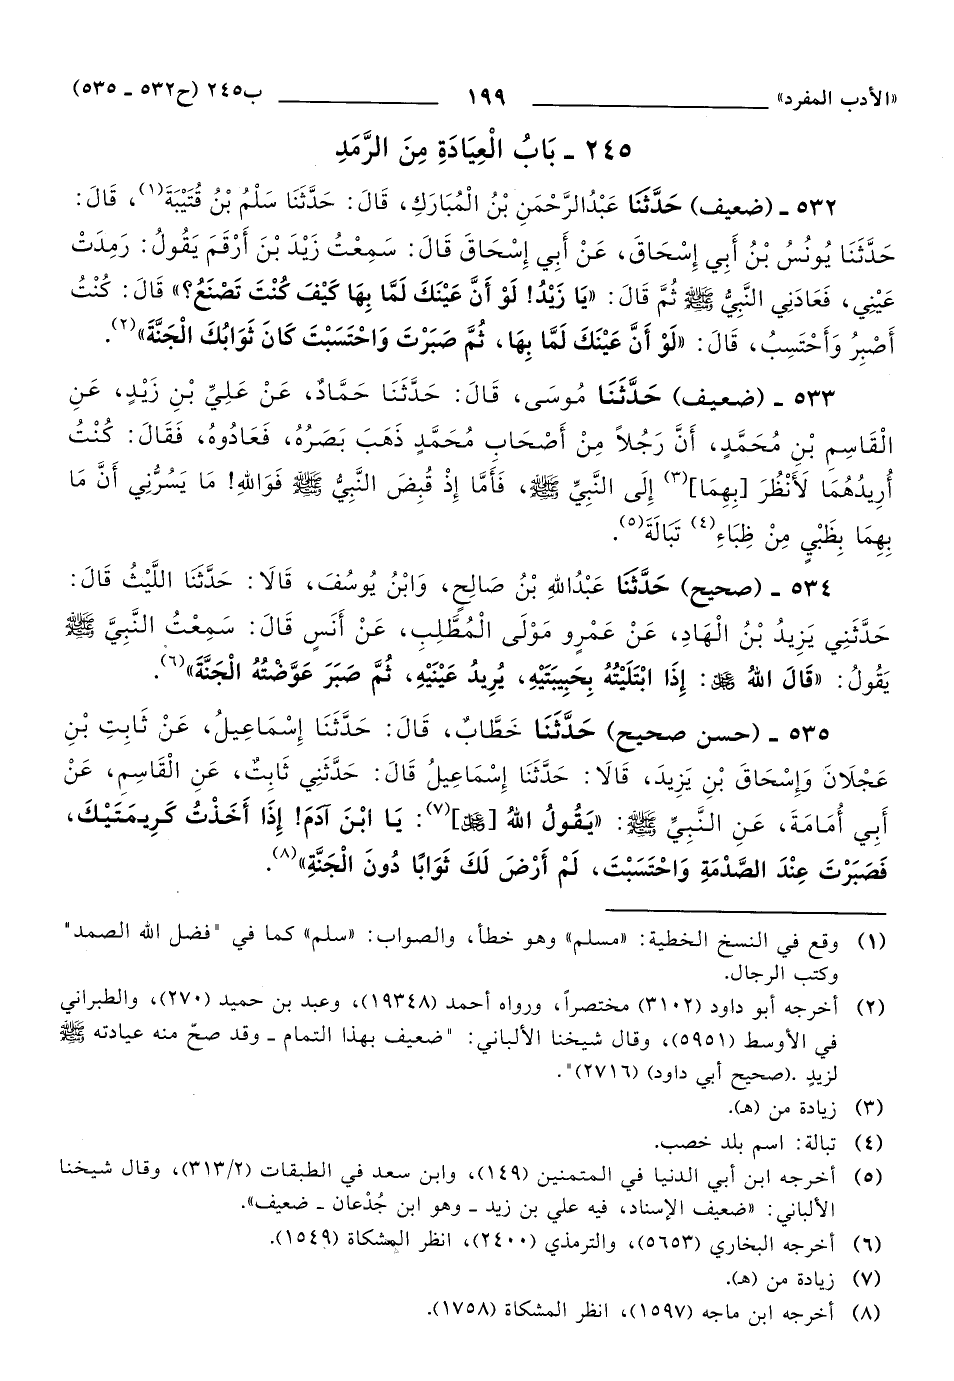 «الأدب المفرد» ١٩٩ ب٢٤٥ (ح٥٣٢ ـ ٥٣٥)
٢٤٥ ـ بَابُ الْعِيَادَةِ مِنَ الرَّمَدِ
٥٣٢ ـ (ضعيف) حَدَّثَنَا عَبْدُالرَّحْمَنِ بْنُ الْمُبَارَكِ، قَالَ: حَدَّثَنَا سَلْمُ بْنُ قُتَيْبَةَ(١)، قَالَ:
حَدَّثَنَا يُونُسُ بْنُ أَبِي إِسْحَاقَ، عَنْ أَبِي إِسْحَاقَ قَالَ: سَمِعْتُ زَيْدَ بْنَ أَرْقَمَ يَقُولُ: رَمِدَتْ
عَيْنِي، فَعَادَنِي النَّبِيُّ ﷺ ثُمَّ قَالَ: «يَا زَيْدُ! لَوْ أَنَّ عَيْنَكَ لَمَّا بِهَا كَيْفَ كُنْتَ تَصْنَعُ؟» قَالَ: كُنْتُ
أَصْبِرُ وَأَحْتَسِبُ، قَالَ: «لَوْ أَنَّ عَيْنَكَ لَمَّا بِهَا، ثُمَّ صَبَرْتَ وَاحْتَسَبْتَ كَانَ ثَوَابُكَ الْجَنَّةَ»(٢).
٥٣٣ ـ (ضعيف) حَدَّثَنَا مُوسَى، قَالَ: حَدَّثَنَا حَمَّادٌ، عَنْ عَلِيِّ بْنِ زَيْدٍ، عَنِ
الْقَاسِمِ بْنِ مُحَمَّدٍ، أَنَّ رَجُلاً مِنْ أَصْحَابِ مُحَمَّدٍ ذَهَبَ بَصَرُهُ، فَعَادُوهُ، فَقَالَ: كُنْتُ
أُرِيدُهُمَا لَأَنْظُرَ [بِهِمَا](٣) إِلَى النَّبِيِّ ﷺ، فَأَمَّا إِذْ قُبِضَ النَّبِيُّ ﷺ فَوَاللهِ! مَا يَسُرُّنِي أَنَّ مَا
بِهِمَا بِظَبْيٍ مِنْ ظِبَاءِ(٤) تَبَالَةَ(٥).
٥٣٤ ـ (صحيح) حَدَّثَنَا عَبْدُاللهِ بْنُ صَالِحٍ، وَابْنُ يُوسُفَ، قَالَا: حَدَّثَنَا اللَّيْثُ قَالَ:
حَدَّثَنِي يَزِيدُ بْنُ الْهَادِ، عَنْ عَمْرٍو مَوْلَى الْمُطَّلِبِ، عَنْ أَنَسٍ قَالَ: سَمِعْتُ النَّبِيَّ ﷺ
يَقُولُ: «قَالَ اللهُ ﷻ: إِذَا ابْتَلَيْتُهُ بِحَبِيبَتَيْهِ، يُرِيدُ عَيْنَيْهِ، ثُمَّ صَبَرَ عَوَّضْتُهُ الْجَنَّةَ»(٦).
٥٣٥ ـ (حسن صحيح) حَدَّثَنَا خَطَّابٌ، قَالَ: حَدَّثَنَا إِسْمَاعِيلُ، عَنْ ثَابِتِ بْنِ
عَجْلَانَ وَإِسْحَاقَ بْنِ يَزِيدَ، قَالَا: حَدَّثَنَا إِسْمَاعِيلُ قَالَ: حَدَّثَنِي ثَابِتٌ، عَنِ الْقَاسِمِ، عَنْ
أَبِي أُمَامَةَ، عَنِ النَّبِيِّ ﷺ: «يَقُولُ اللهُ [ﷻ](٧): يَا ابْنَ آدَمَ! إِذَا أَخَذْتُ كَرِيمَتَيْكَ،
فَصَبَرْتَ عِنْدَ الصَّدْمَةِ وَاحْتَسَبْتَ، لَمْ أَرْضَ لَكَ ثَوَابًا دُونَ الْجَنَّةِ»(٨).
(١) وقع في النسخ الخطية: «مسلم» وهو خطأ، والصواب: «سلم» كما في "فضل الله الصمد"
وكتب الرجال.
(٢) أخرجه أبو داود (٣١٠٢) مختصراً، ورواه أحمد (١٩٣٤٨)، وعبد بن حميد (٢٧٠)، والطبراني
في الأوسط (٥٩٥١)، وقال شيخنا الألباني: "ضعيف بهذا التمام ـ وقد صحّ منه عيادته ﷺ
لزيدٍ .(صحيح أبي داود) (٢٧١٦)".
(٣) زيادة من (هـ).
(٤) تبالة: اسم بلد خصب.
(٥) أخرجه ابن أبي الدنيا في المتمنين (١٤٩)، وابن سعد في الطبقات (٣١٣/٢)، وقال شيخنا
الألباني: «ضعيف الإسناد، فيه علي بن زيد ـ وهو ابن جُدْعان ـ ضعيف».
(٦) أخرجه البخاري (٥٦٥٣)، والترمذي (٢٤٠٠)، انظر المشكاة (١٥٤٩).
(٧) زيادة من (هـ).
(٨) أخرجه ابن ماجه (١٥٩٧)، انظر المشكاة (١٧٥٨).